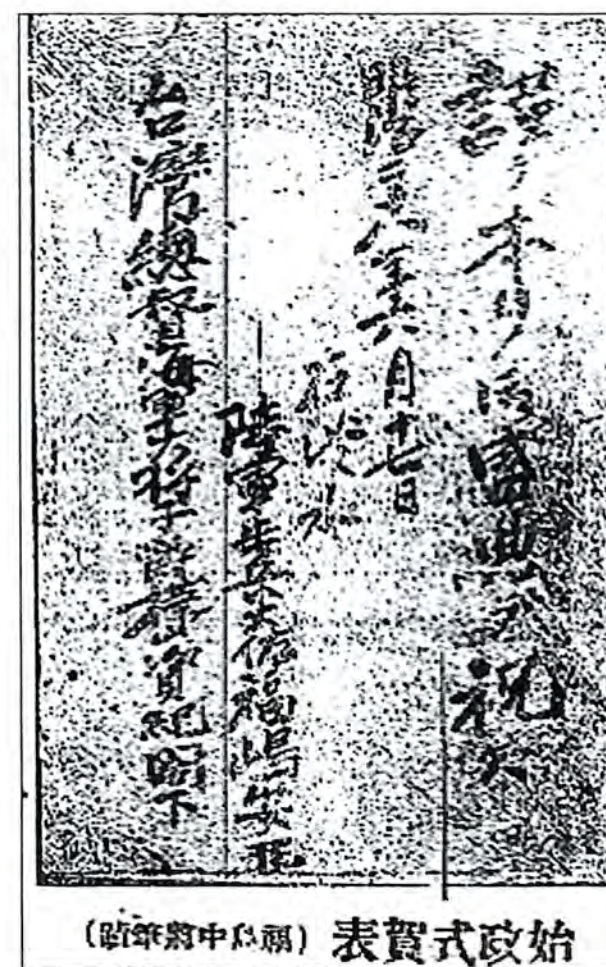 謹テ本日ノ盛典ヲ祝ス
明治廿八年六月十七日
於淡水
陸軍歩兵大佐福島安正
台灣總督海軍大将子爵樺山資紀閣下
始政式賀表（福島中將筆蹟）